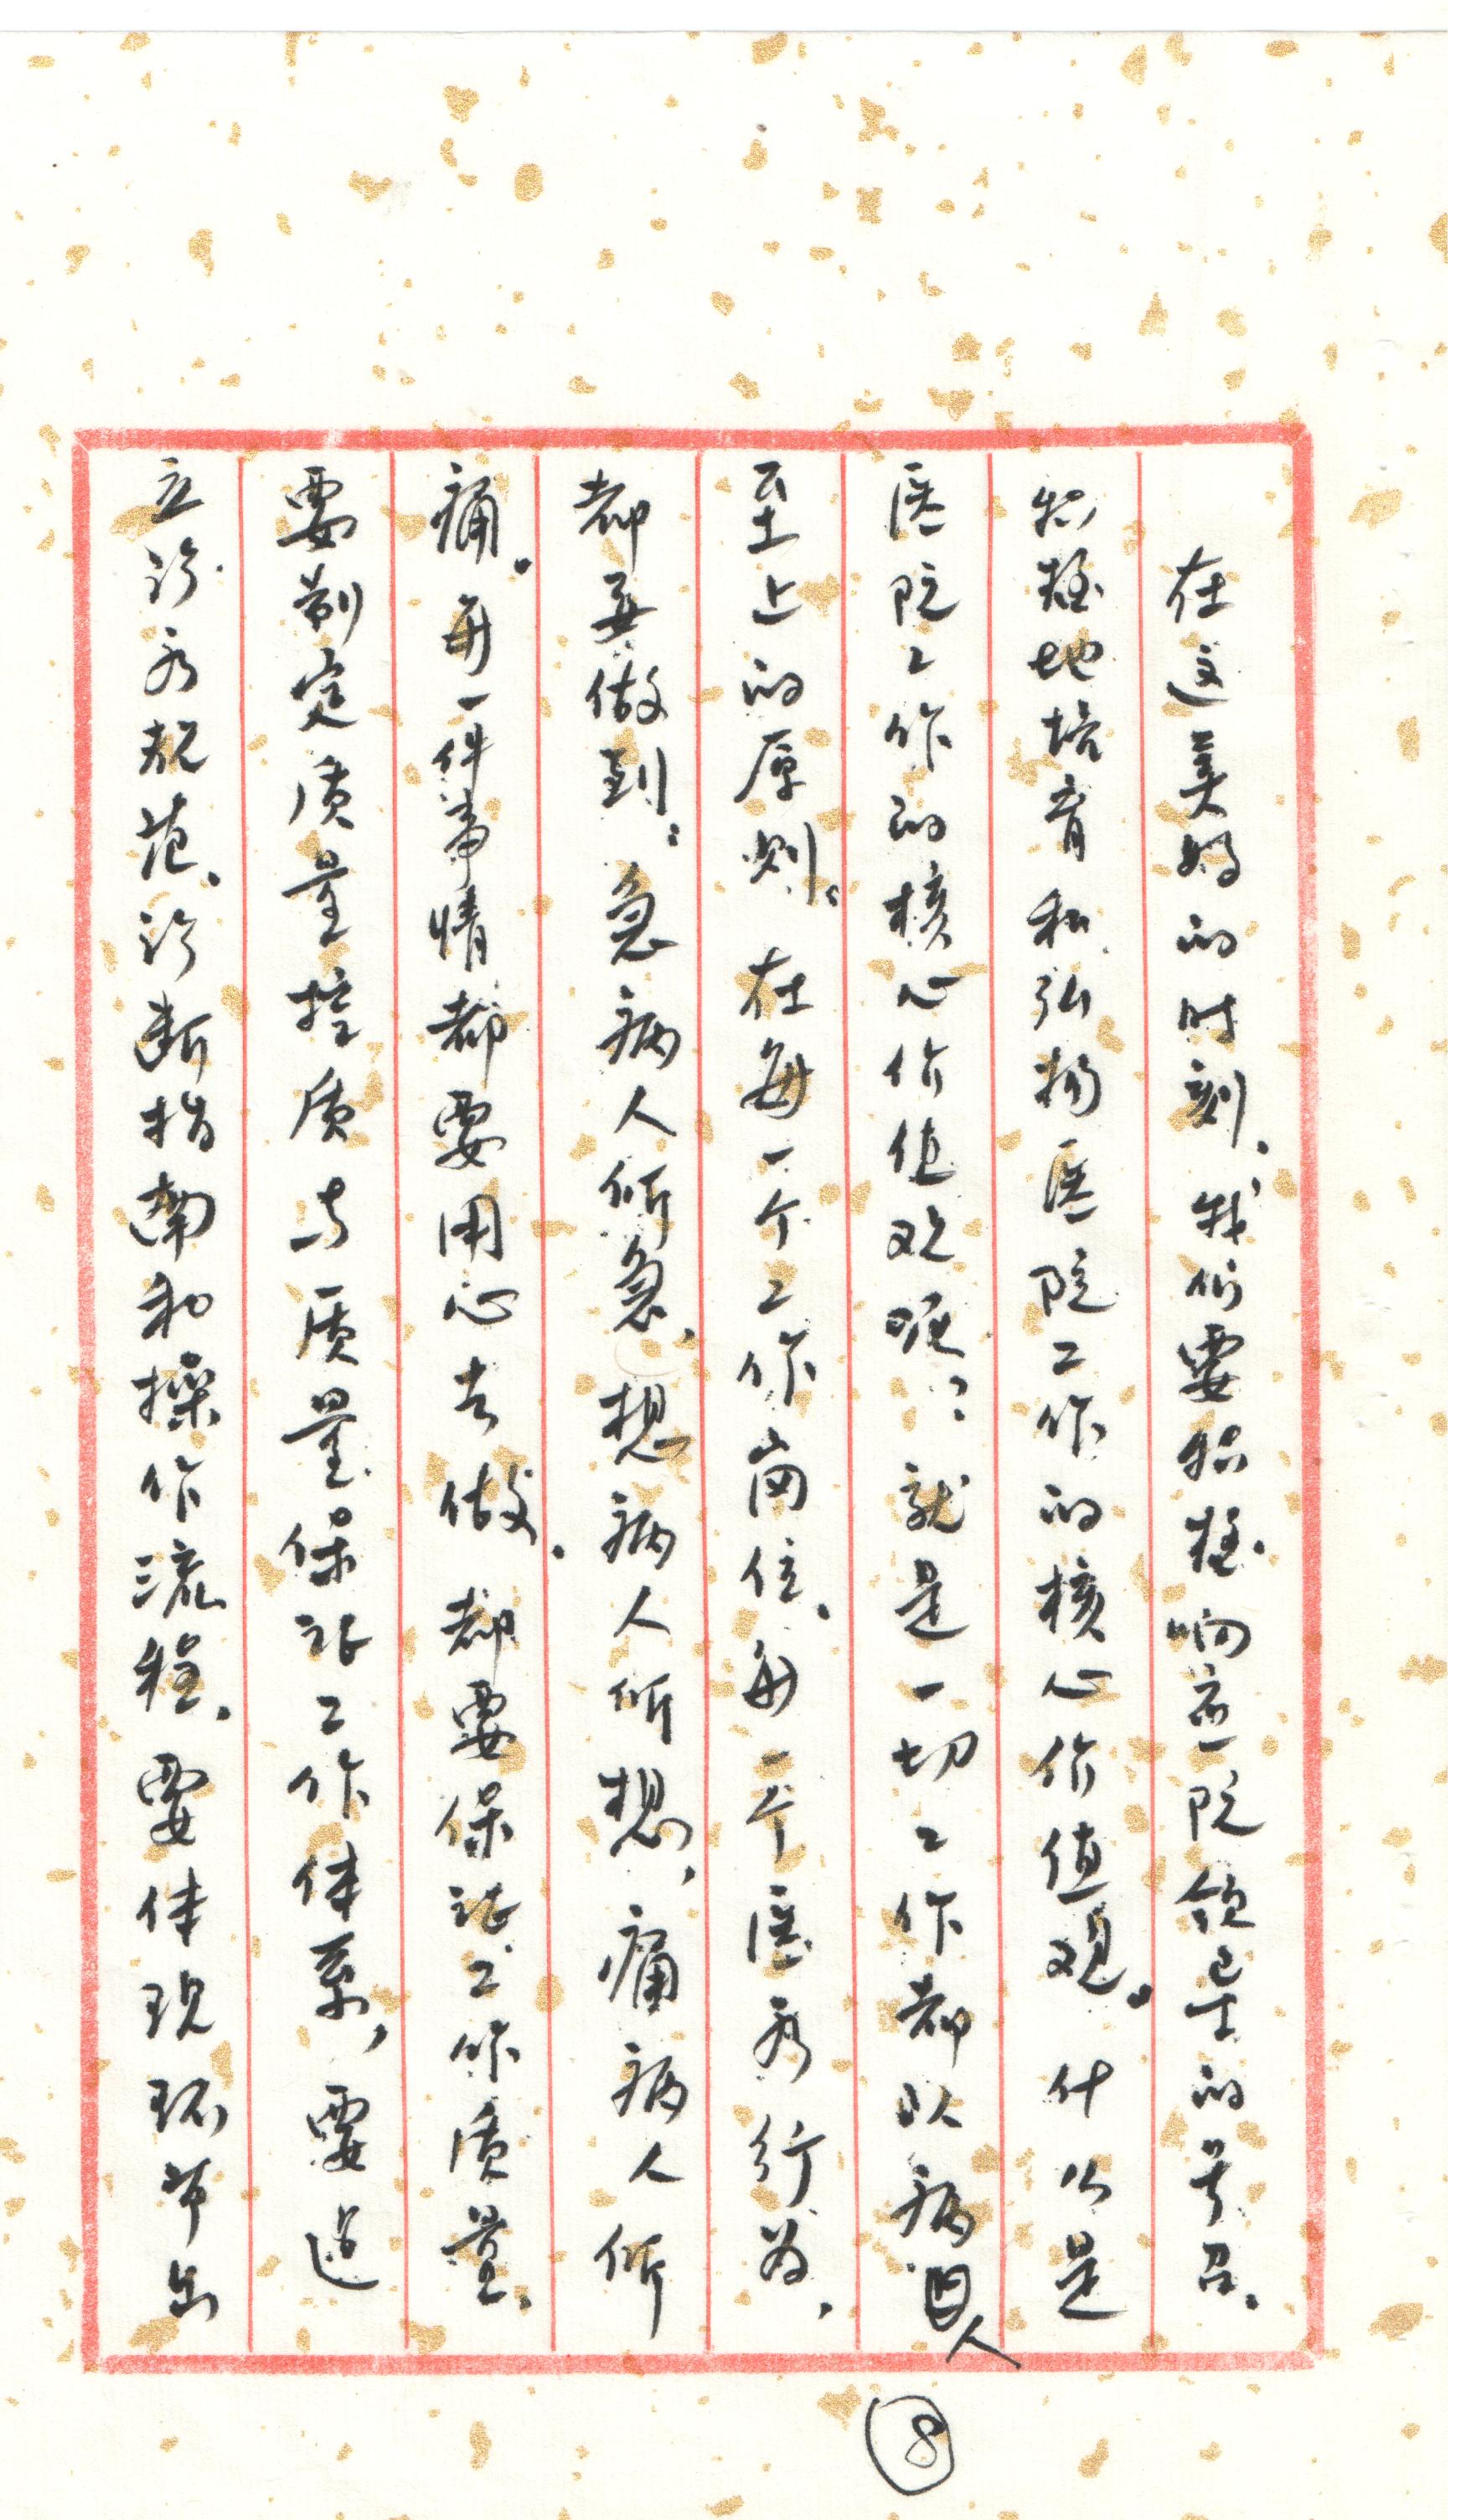 在这美好的时刻，我们要积极响应院领导的号召，
积极地培育和弘扬医院工作的核心价值观。什么是
医院工作的核心价值观呢？就是一切工作都以病人
至上的原则。在每一个工作岗位、每一个医务行为，
都要做到：急病人所急，想病人所想，痛病人所
痛。每一件事情都要用心去做，都要保证工作质量，
要制定质量控质与质量保证工作体系，要建
立诊疗规范、诊断指南和操作流程，要体现环节出
8